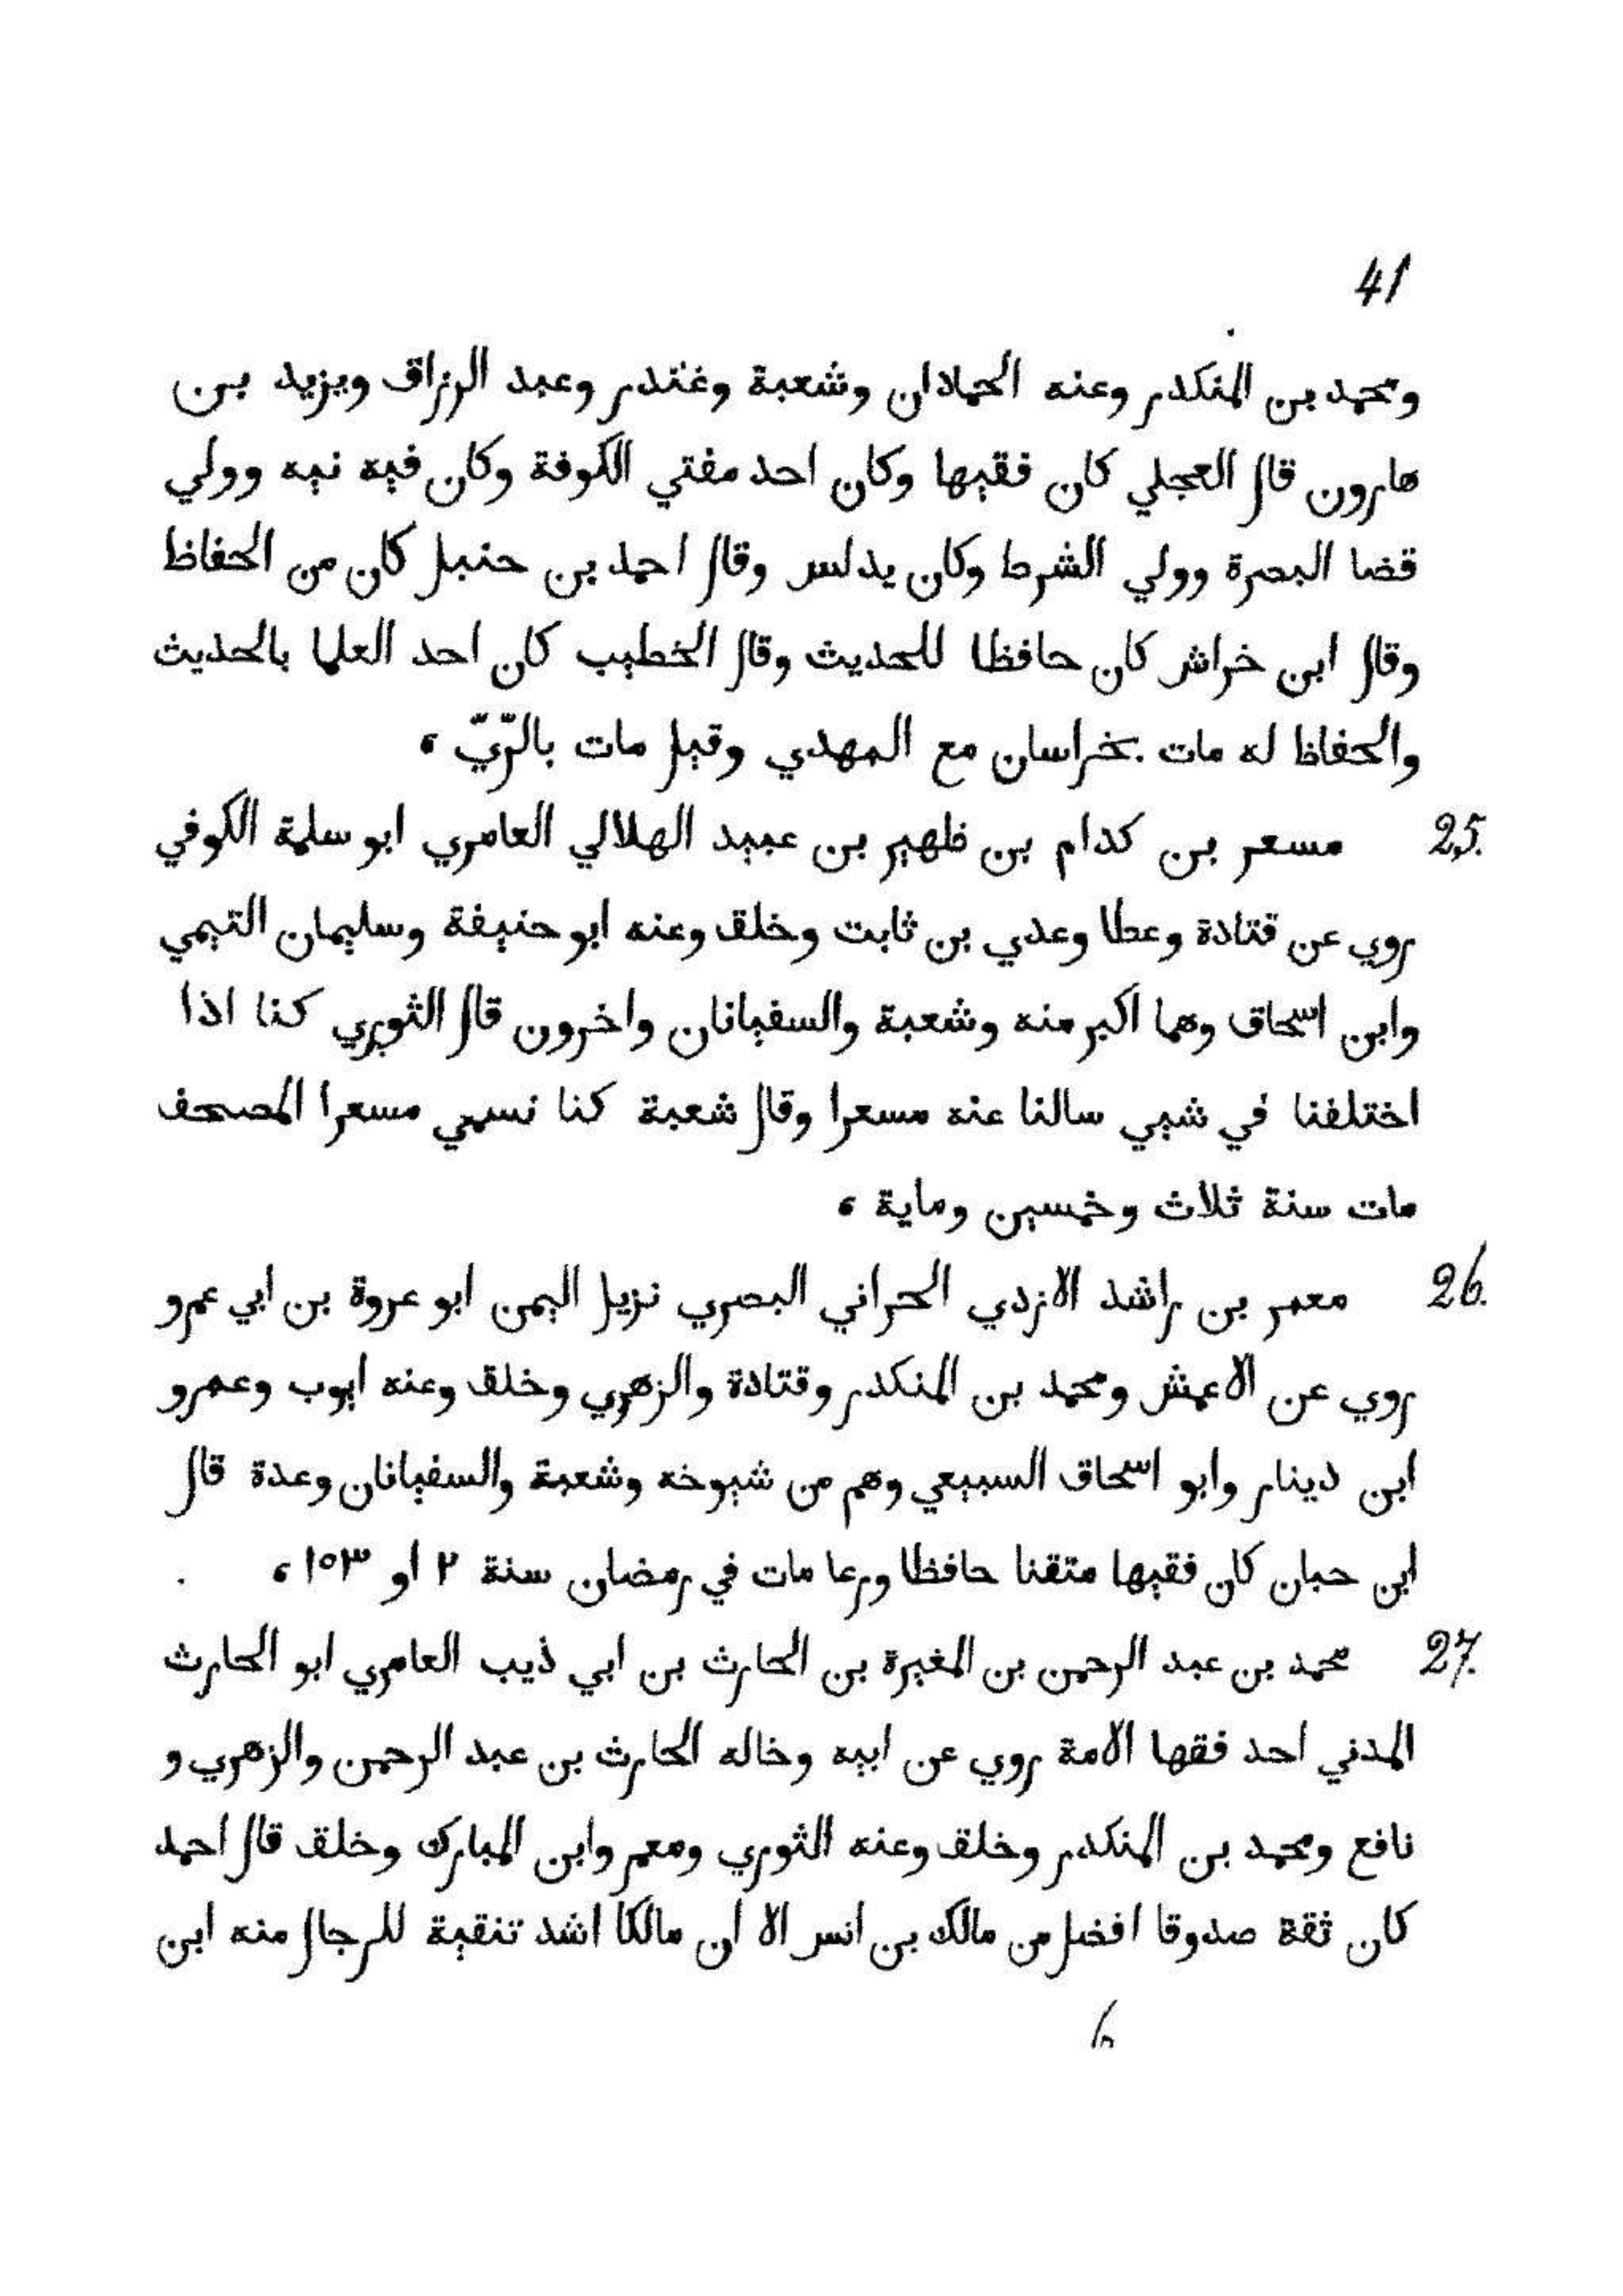 41
ومحمد بن المنكدر وعنه الحمادان وشعبة وغندر وعبد الرزاق ويزيد بن
هارون قال العجلي كان فقيها وكان احد مفتي الكوفة وكان فيه نيه وولي
قضا البصرة وولي الشرط وكان يدلس وقال احمد بن حنبل كان من الحفاظ
وقال ابن خراش كان حافظا للحديث وقال الخطيب كان احد العلما بالحديث
والحفاظ له مات بخراسان مع المهدي وقيل مات بالرّيّ ،
25. مسعر بن كدام بن ظهير بن عبيد الهلالي العامري ابو سلمة الكوفي
روي عن قتادة وعطا وعدي بن ثابت وخلق وعنه ابو حنيفة وسليمان التيمي
وابن اسحاق وهما اكبر منه وشعبة والسفيانان واخرون قال الثوري كنا اذا
اختلفنا في شيي سالنا عنه مسعرا وقال شعبة كنا نسمي مسعرا المصحف
مات سنة ثلاث وخمسين وماية ،
26. معمر بن راشد الازدي الحراني البصري نزيل اليمن ابو عروة بن ابي عمرو
روي عن الاعمش ومحمد بن المنكدر وقتادة والزهري وخلق وعنه ايوب وعمرو
ابن دينار وابو اسحاق السبيعي وهم من شيوخه وشعبة والسفيانان وعدة قال
ابن حبان كان فقيها متقنا حافظا ورعا مات في رمضان سنة ٢ او ١٥٣ ،
27. محمد بن عبد الرحمن بن المغيرة بن الحارث بن ابي ذيب العامري ابو الحارث
المدني احد فقها الامة روي عن ابيه وخاله الحارث بن عبد الرحمن والزهري و
نافع ومحمد بن المنكدر وخلق وعنه الثوري ومعمر وابن المبارك وخلق قال احمد
كان ثقة صدوقا افضل من مالك بن انس الا ان مالكا اشد تنقية للرجال منه ابن